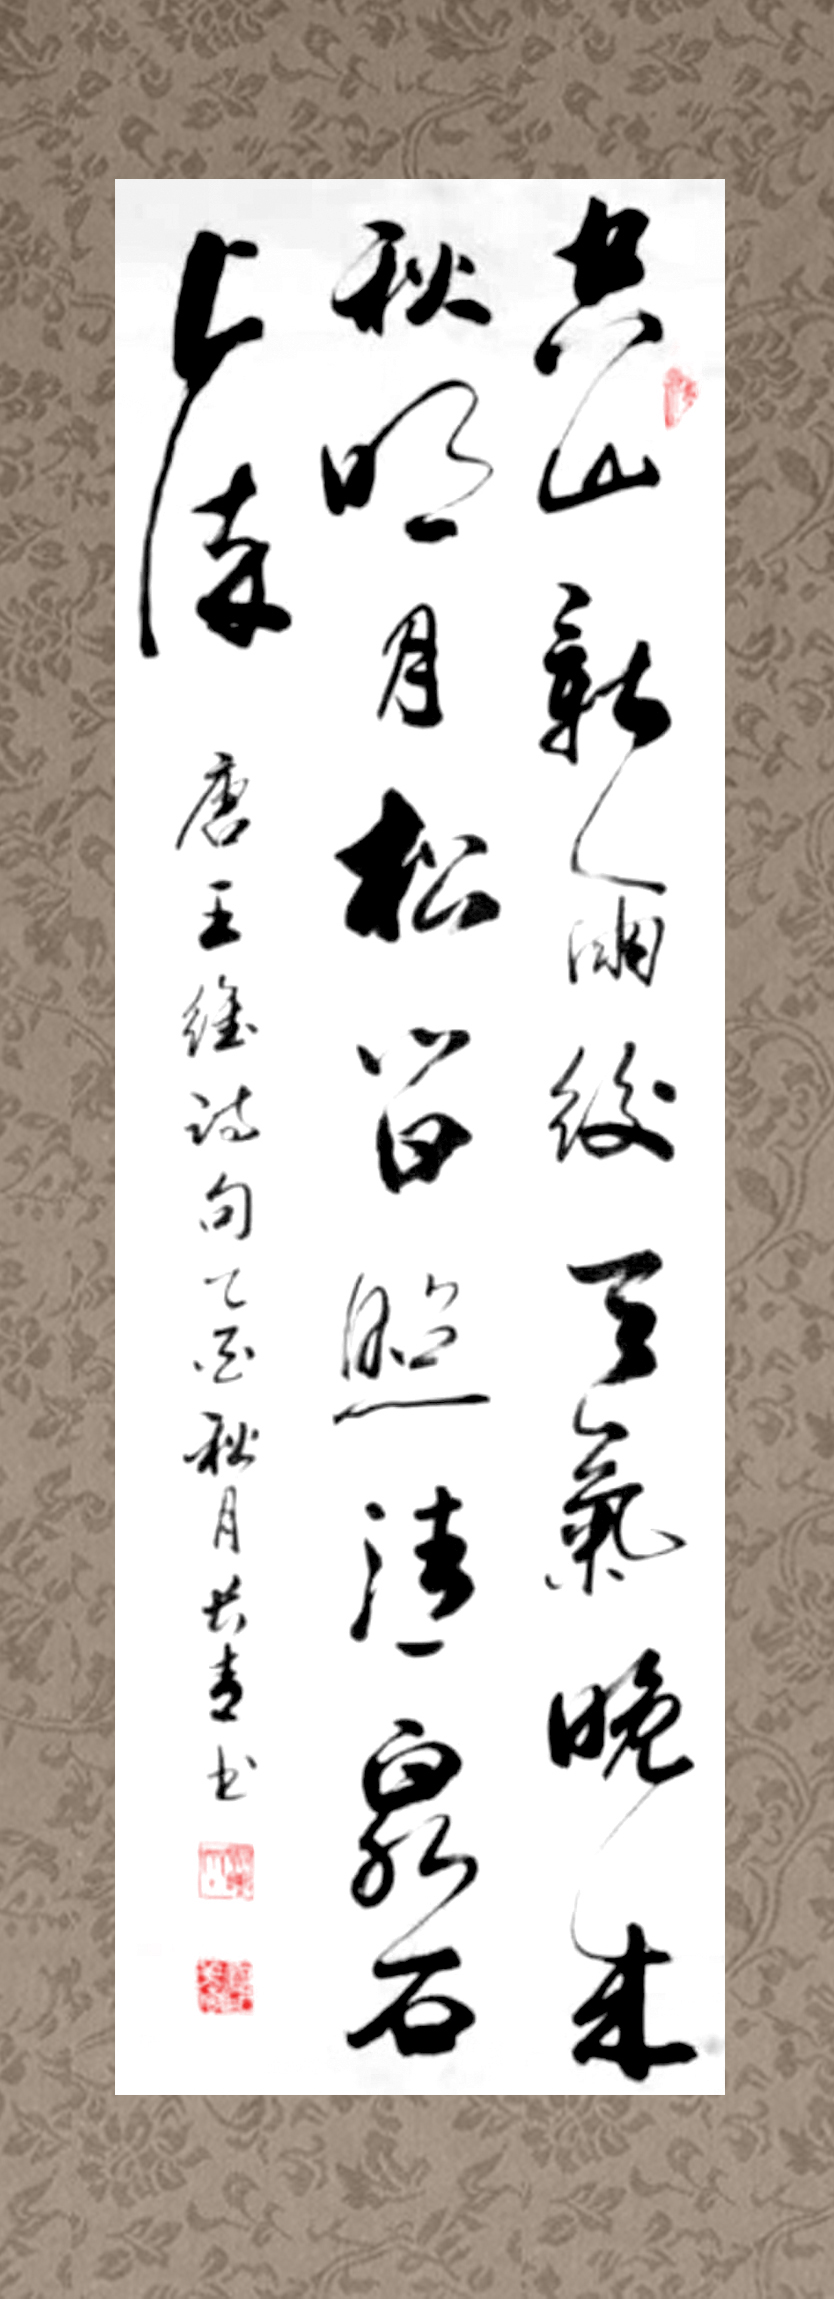 空山新雨後天氣晚來
秋明月松間照清泉石
上流 唐王維詩句乙酉秋月共青书